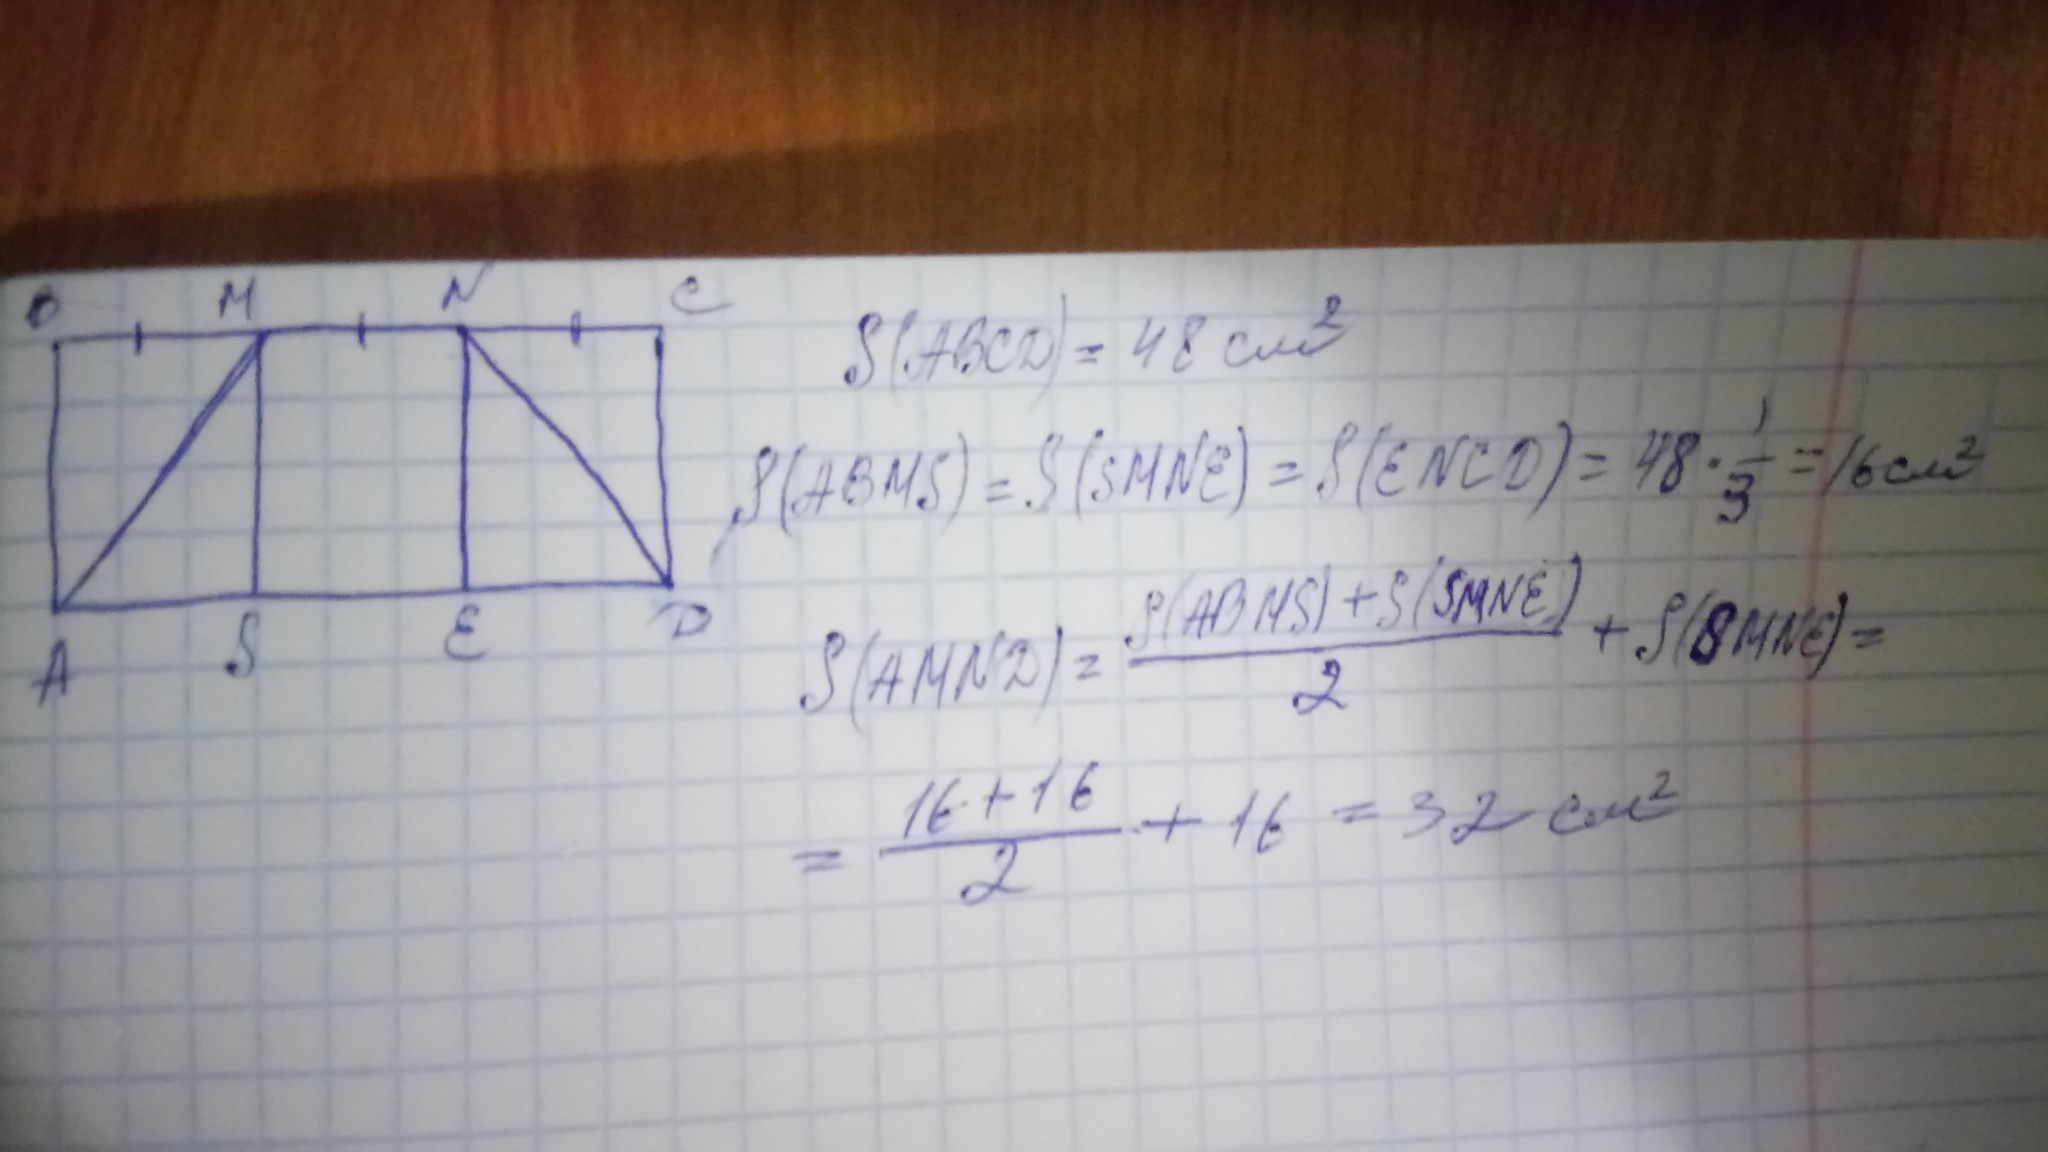 B M N C
A S E D
S(ABCD) = 48 см²
S(ABMS) = S(SMNE) = S(ENCD) = 48 · 1/3 = 16 см²
S(AMND) = (S(ABMS) + S(SMNE))/2 + S(SMNE) =
= (16 + 16)/2 + 16 = 32 см²